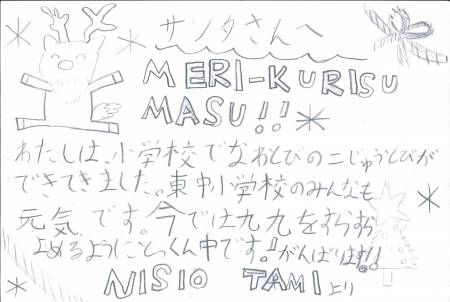 サンタさんへ
MERI-KURISU
MASU!!
わたしは、小学校でなわとびの二じゅうとびが
できてきました。東中小学校のみんなも
元気です。今では九九をすらすら
よめるようにとっくん中です。がんばります!!
NISIO TAMIより